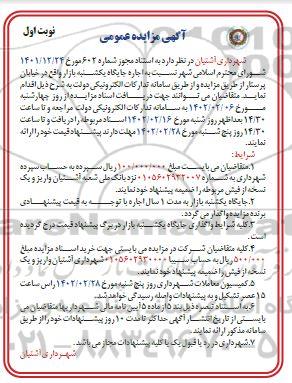 نوبت اول
آگهی مزایده عمومی
شهرداری آشتیان در نظر دارد به استناد مجوز شماره ۶۰۲ مورخ ۱۴۰۱/۱۲/۲۳
شورای محترم اسلامی شهر نسبت به اجاره جایگاه یکشنبه بازار واقع در خیابان
پرستار از طریق مزایده و از طریق سامانه تدارکات الکترونیکی دولت به شرح ذیل اقدام
نماید. متقاضیان می توانند جهت دریافت اسناد مزایده از روز چهارشنبه
مورخ ۱۴۰۲/۰۲/۰۶ به سامانه تدارکات الکترونیکی دولت مراجعه و تا ساعت
۱۴/۳۰ بعدازظهر روز شنبه مورخ ۱۴۰۲/۰۲/۱۶ اسناد مربوطه را دریافت و تا ساعت
۱۴/۳۰ روز پنج شنبه مورخ ۱۴۰۲/۰۲/۲۸ مهلت دارند پیشنهاد قیمت خود را ارائه
نمایند.
شرایط:
۱.متقاضیان می بایست مبلغ ۱۰۰/۰۰۰/۰۰۰ ریال سپرده به حساب سپرده
شهرداری به شماره ۰۱۰۵۶۰۲۹۳۳۰۰۷ نزد بانک ملی شعبه آشتیان واریز و یک
نسخه از فیش مربوطه را ضمیمه پیشنهاد خود نمایند.
۲.جایگاه یکشنبه بازار به مدت ۱ سال اجاره با توجه به قیمت پیشنهادی
برنده مزایده واگذار می گردد.
۳.کلیه شرایط واگذاری جایگاه یکشنبه بازار در برگ پیشنهاد قیمت درج گردیده
است.
۴.کلیه متقاضیان شرکت در مزایده می بایستی جهت خرید اسناد مزایده مبلغ
۵۰۰/۰۰۰ ریال به حساب سیبا شهرداری آشتیان واریز و یک
نسخه از فیش را ضمیمه پیشنهاد خود نمایند.
۵.کمیسیون معاملات شهرداری روز پنج شنبه مورخ ۱۴۰۲/۰۲/۲۸ راس ساعت
۱۵ عصر تشکیل و به پیشنهادات واصله رسیدگی خواهد شد.
۶.به استناد تبصره ذیل بند ۵ از ماده ۵ آیین نامه مالی شهرداریها متقاضیان می
بایستی از تاریخ انتشار آگهی حداکثر تا مدت ۱۰ روز پیشنهادات خود را از طریق
سامانه مذکور ارائه نمایند.
۷.شهرداری در رد یا قبول یک یا کلیه پیشنهادات مجاز می باشد.
شهرداری آشتیان